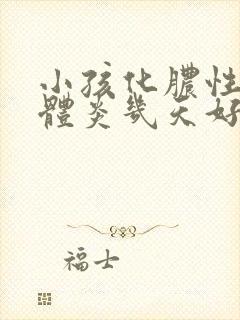 小孩化膿性
體炎幾天好
福士